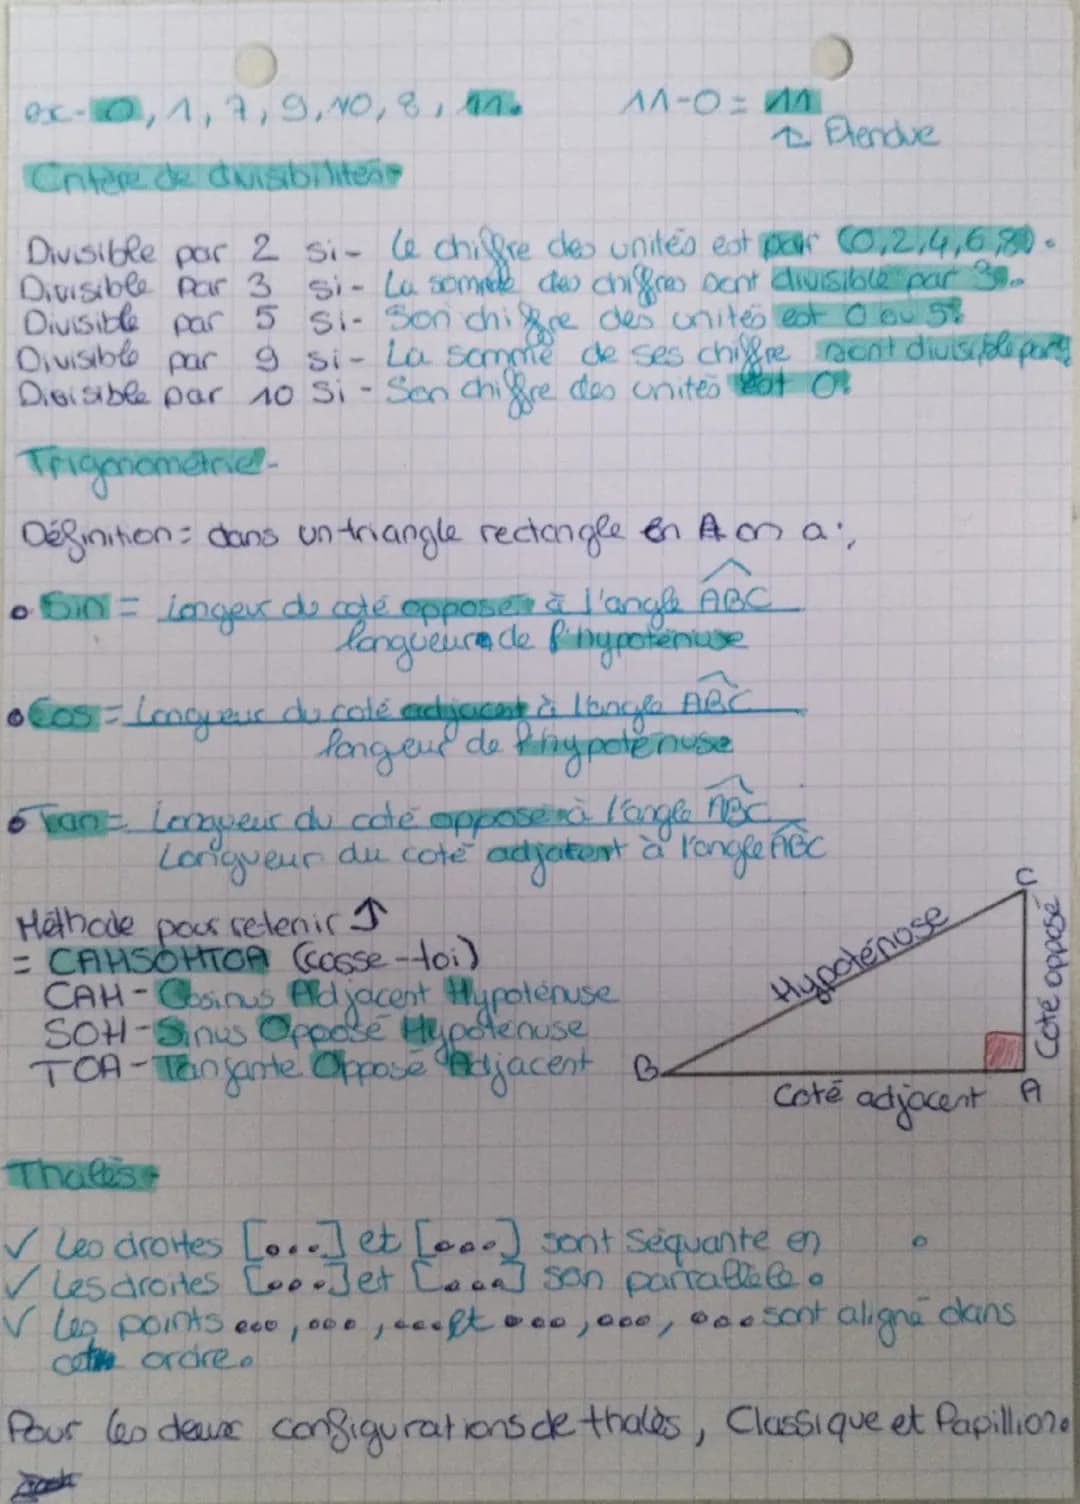 ex- 0, 1, 7, 9, 10, 8, 11. 11-0 = 11
↑ Etendue
Critère de divisibilités-
Divisible par 2 si- Le chiffre des unités est pair (0,2,4,6,8).
Divisible par 3 si- La somme des chiffres sont divisible par 3.
Divisible par 5 si- Son chiffre des unités est 0 ou 5.
Divisible par 9 si- La somme de ses chiffre sont divisible par 9
Divisible par 10 si- Son chiffre des unités est 0.
Trigonométrie-
Définition= dans un triangle rectangle en A on a:
• Sin = Longeur du coté opposé à l'angle ABC
longueur de l'hypoténuse
• Cos = Longueur du coté adjacent à l'angle ABC
longeur de l'hypoténuse
• Tan = Longueur du coté opposé à l'angle ABC
Longueur du coté adjatent à l'angle ABC
Méthode pour retenir ↑
= CAHSOHTOA (casse-toi)
CAH- Cosinus Adjacent Hypoténuse
SOH- Sinus Opposé Hypoténuse
TOA- Tanjante Opposé Adjacent
C
Hypoténose
Coté opposé
B
Coté adjacent A
Thalès-
✓ Les droites [...] et [...] sont séquante en .
✓ Les droites [...] et [...] son parrallèle.
✓ Les points ..., ..., ... et ..., ..., ... sont aligné dans
cette ordre.
Pour les deux configurations de thalès, Classique et Papillion.